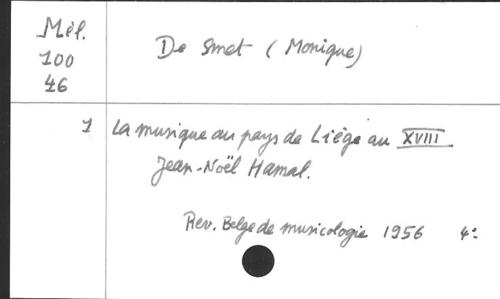 Mél.
100
46
De Smet (Monique)
1 La musique au pays de Liège au XVIII
Jean-Noël Hamal.
Rev. Belge de musicologie 1956 4°